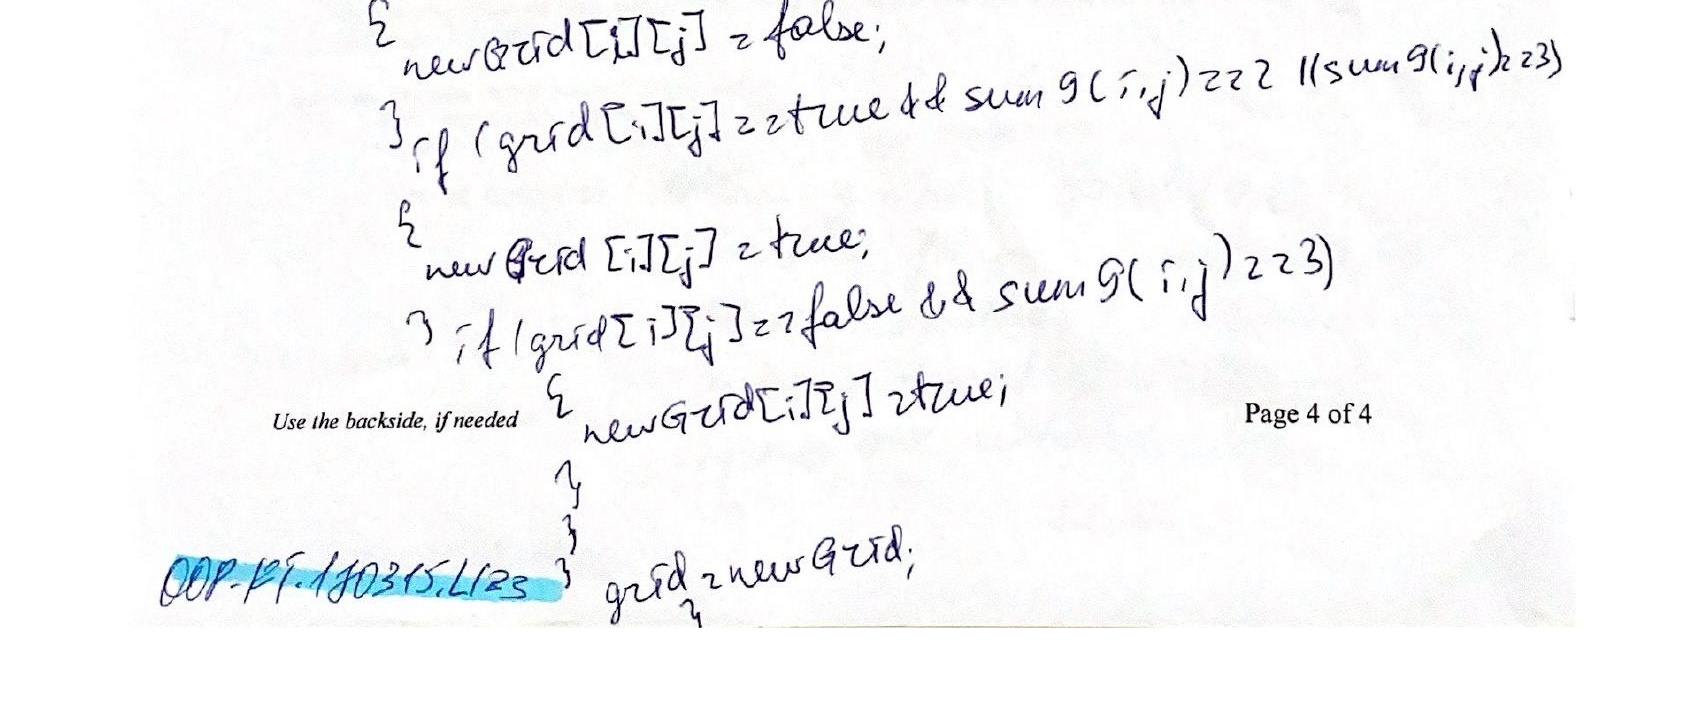 {
newGrid[i][j] = false;
}
if (grid[i][j]==true && sum9(i,j)==2 ||(sum9(i,j)==3)
{
newGrid[i][j] = true;
} if (grid[i][j]==false && sum9(i,j)==3)
{
newGrid[i][j] =true;
Use the backside, if needed
Page 4 of 4
}
}
} grid = newGrid;
}